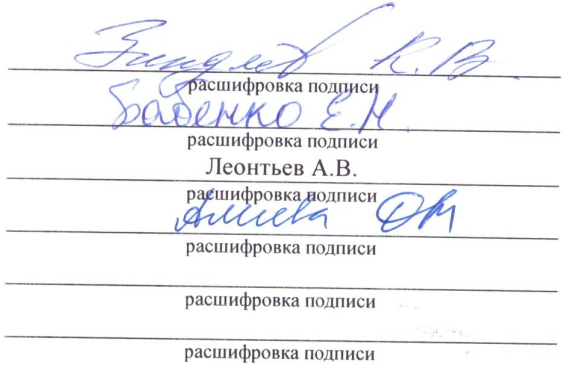 К. В.
расшифровка подписи
Бабенко Е.Н.
расшифровка подписи
Леонтьев А.В.
расшифровка подписи
Алиева ОМ
расшифровка подписи
расшифровка подписи
расшифровка подписи